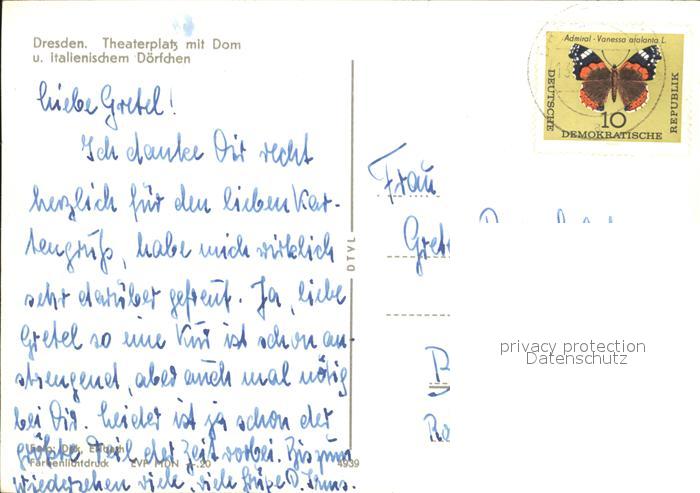 Dresden. Theaterplatz mit Dom
u. italienischem Dörfchen
Liebe Gretel!
Ich danke Dir recht
herzlich für den lieben Kar-
tengruß, habe mich wirklich
sehr darüber gefreut. Ja, liebe
Gretel so eine Kur ist schon an-
strengend, aber auch mal nötig
bei Dir. Leider ist ja schon der
größte Teil der Zeit vorbei. Bis zum
Wiedersehen viele, viele Grüße D.
Farbenlichtdruck EVP MDN -.20 4939
DTVL
Admiral - Vanessa atalanta L.
DEUTSCHE
DEMOKRATISCHE
REPUBLIK
10
Frau
privacy protection
Datenschutz